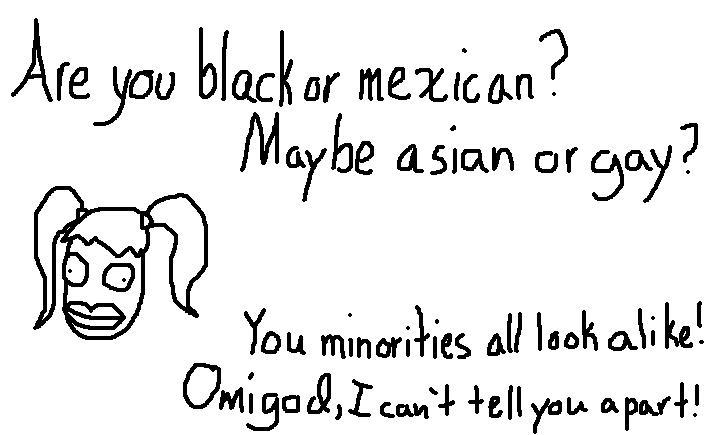 Are you black or mexican?
Maybe asian or gay?
You minorities all look alike!
Omigod, I can't tell you apart!